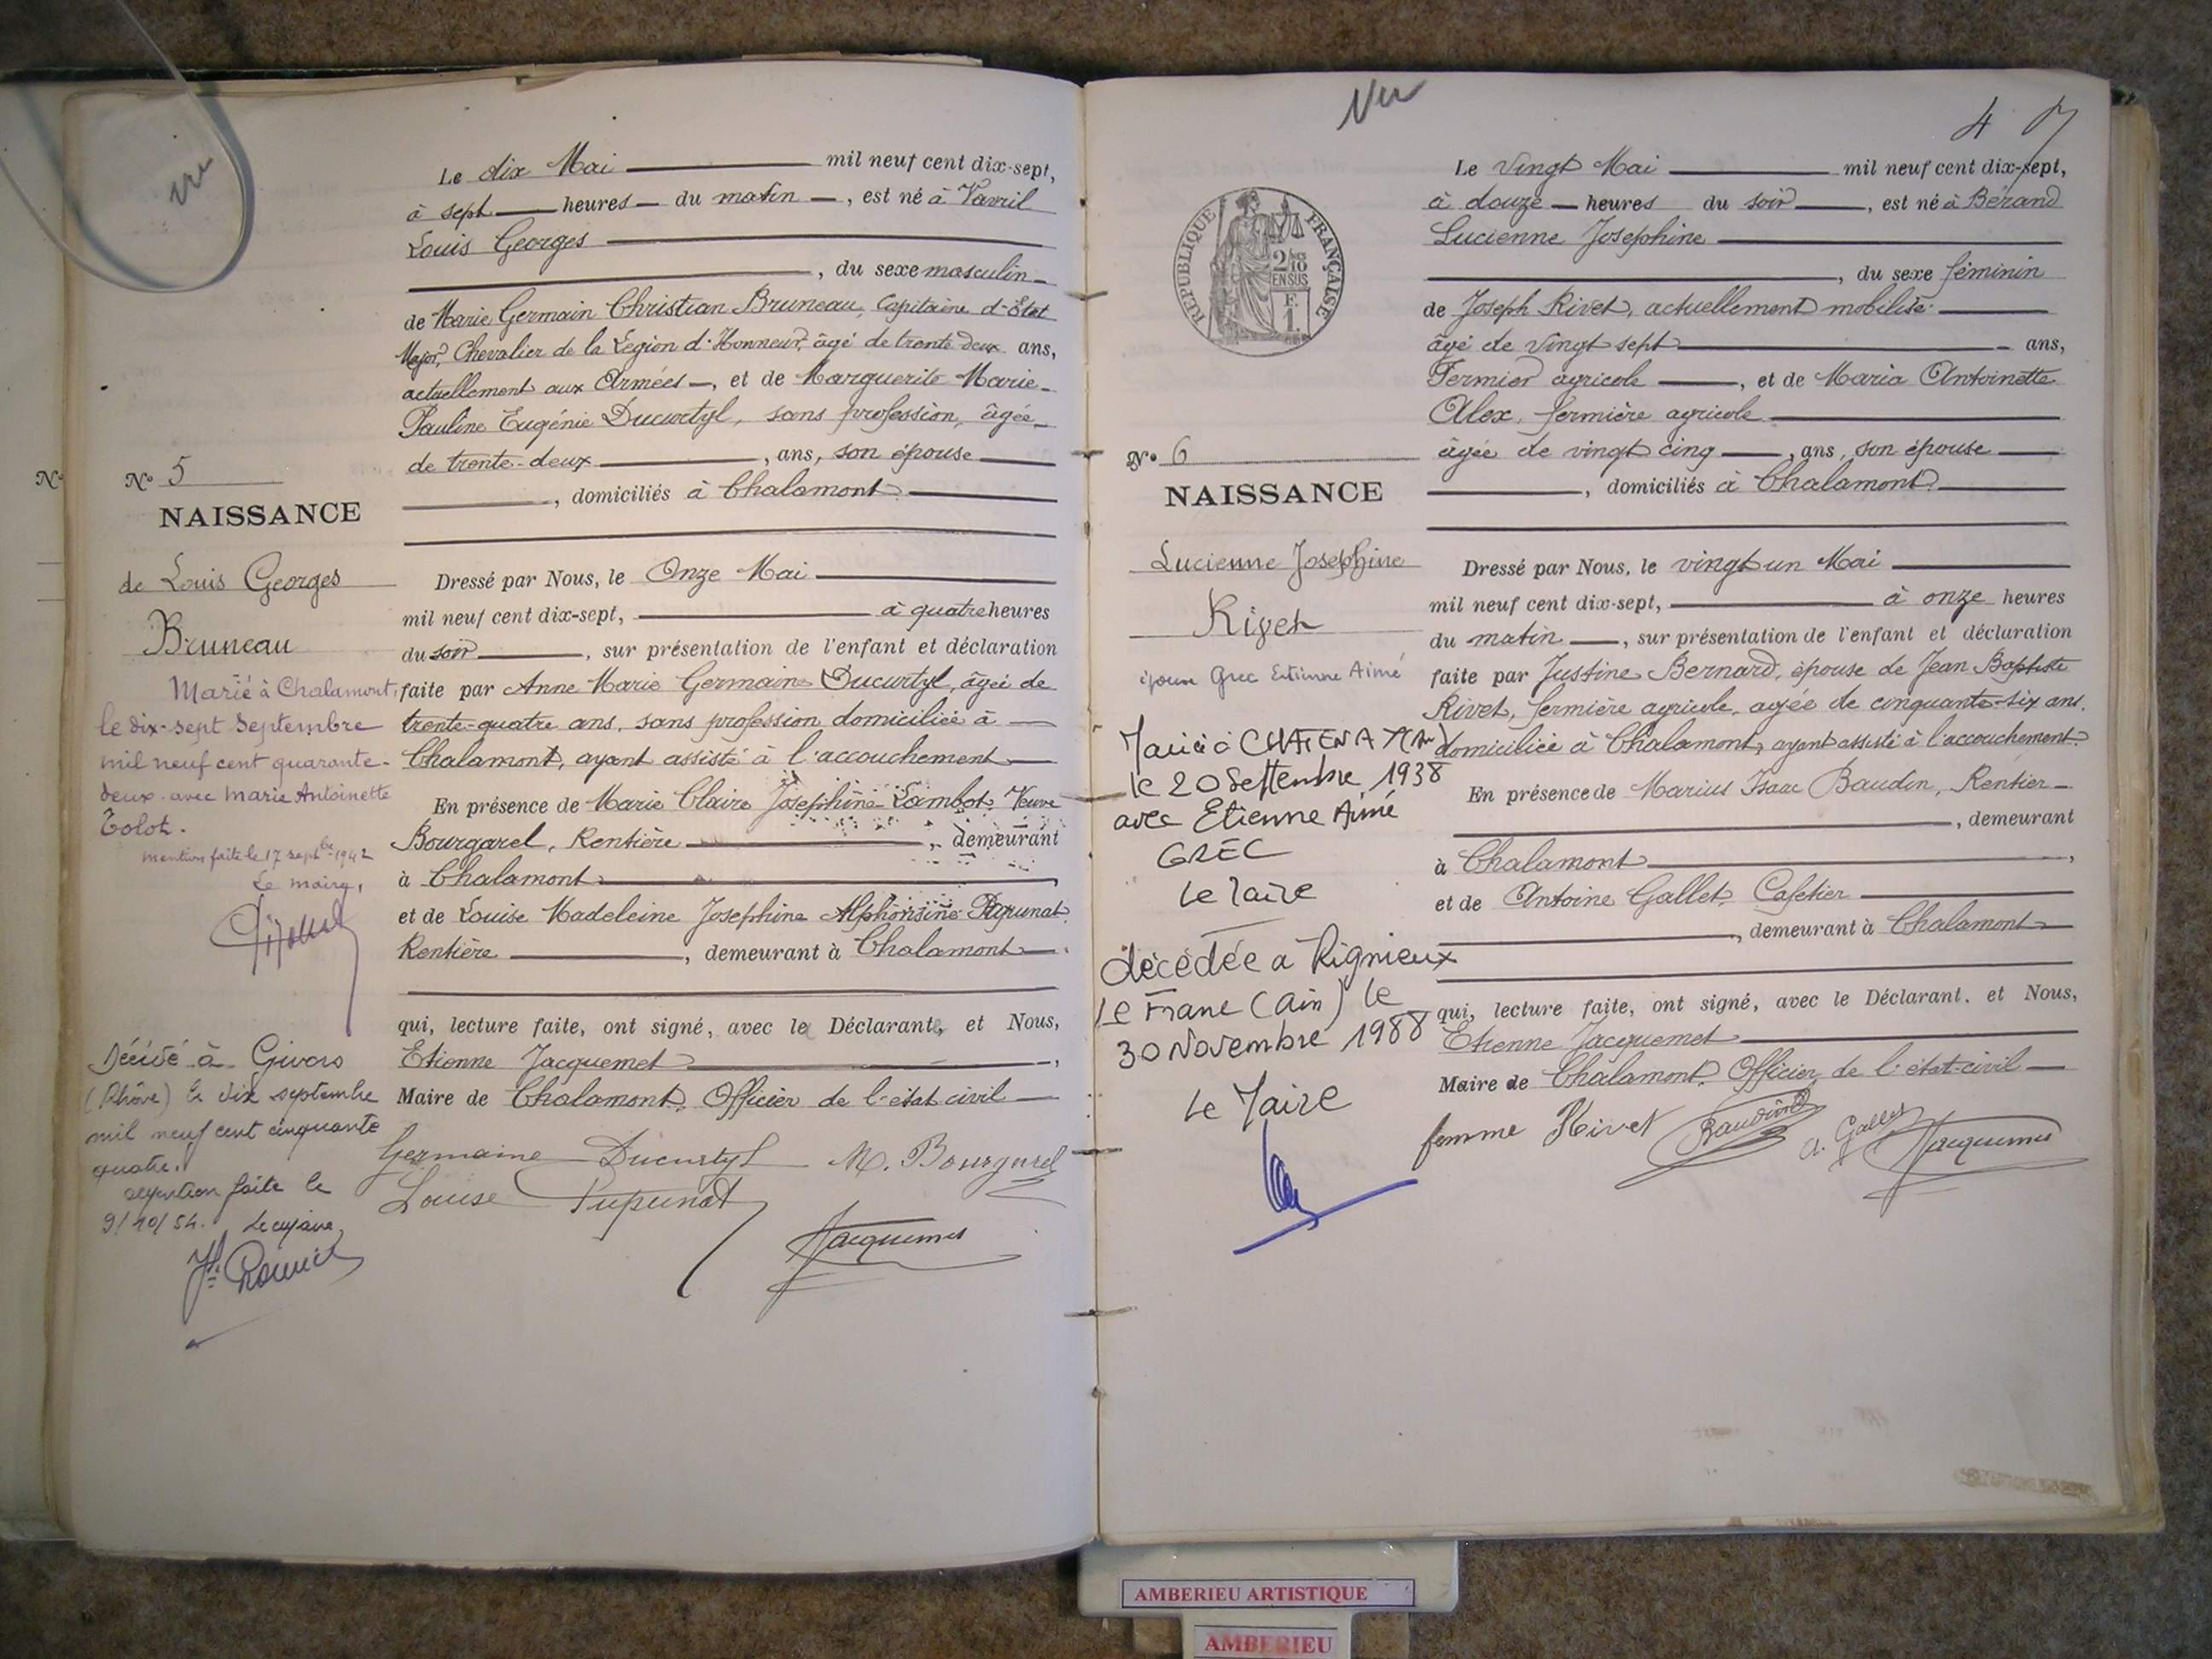 vu
Le dix Mai mil neuf cent dix-sept,
à sept heures du matin, est né à Vavril
Louis Georges
, du sexe masculin
de Marie Germain Christian Bruneau, Capitaine d'Etat
Major, Chevalier de la Légion d'Honneur, âgé de trente deux ans,
actuellement aux Armées, et de Marguerite Marie
Pauline Eugénie Ducurtyl, sans profession, âgée
de trente-deux, ans, son épouse
, domiciliés à Chalamont
Dressé par Nous, le Onze Mai
mil neuf cent dix-sept, à quatre heures
du soir, sur présentation de l'enfant et déclaration
faite par Anne Marie Germaine Ducurtyl, âgée de
trente-quatre ans, sans profession domiciliée à
Chalamont, ayant assisté à l'accouchement
En présence de Marie Claire Josephine Lambot, Veuve
Bourgarel, Rentière, demeurant
à Chalamont,
et de Louise Madeleine Josephine Alphonsine Pupunat
Rentière, demeurant à Chalamont
qui, lecture faite, ont signé, avec le Déclarant, et Nous,
Etienne Jacquemet,
Maire de Chalamont, Officier de l'état civil
Germaine Ducurtyl M. Bourgarel
Louise Pupunat
Jacquemet
N°
N° 5
NAISSANCE
de Louis Georges
Bruneau
Marié à Chalamont,
le dix-sept Septembre
mil neuf cent quarante-
deux avec Marie Antoinette
Tolot.
Mention faite le 17 septbre 1942
Le maire,
Décédé à Givors
(Rhône) le dix septembre
mil neuf cent cinquante
quatre.
Mention faite le
9/10/54. Le Maire
Vu
4
REPUBLIQUE FRANÇAISE
2/10
EN SUS
F.
1.
Le vingt Mai mil neuf cent dix-sept,
à douze heures du soir, est né à Bérand
Lucienne Josephine
, du sexe féminin
de Joseph Rivet, actuellement mobilisé
âgé de vingt sept ans,
Fermier agricole, et de Maria Antoinette
Alex, fermière agricole
âgée de vingt cinq, ans, son épouse
, domiciliés à Chalamont
Dressé par Nous, le vingt un Mai
mil neuf cent dix-sept, à onze heures
du matin, sur présentation de l'enfant et déclaration
faite par Justine Bernard, épouse de Jean Baptiste
Rivet, fermière agricole, agée de cinquante-six ans,
domiciliée à Chalamont, ayant assisté à l'accouchement.
En présence de Marius Isaac Baudin, Rentier
, demeurant
à Chalamont,
et de Antoine Gallet, Cafetier
, demeurant à Chalamont
qui, lecture faite, ont signé, avec le Déclarant, et Nous,
Etienne Jacquemet
Maire de Chalamont, Officier de l'état-civil
femme Rivet Baudin A. Gallet Jacquemet
N° 6
NAISSANCE
Lucienne Josephine
Rivet
épouse Grec Etienne Aimé
Mariée à CHATENAY (Ain)
le 20 Septembre 1938
avec Etienne Aimé
GREC
Le Maire
décédée à Rignieux
Le Franc (Ain) le
30 Novembre 1988
Le Maire
AMBERIEU ARTISTIQUE
AMBERIEU